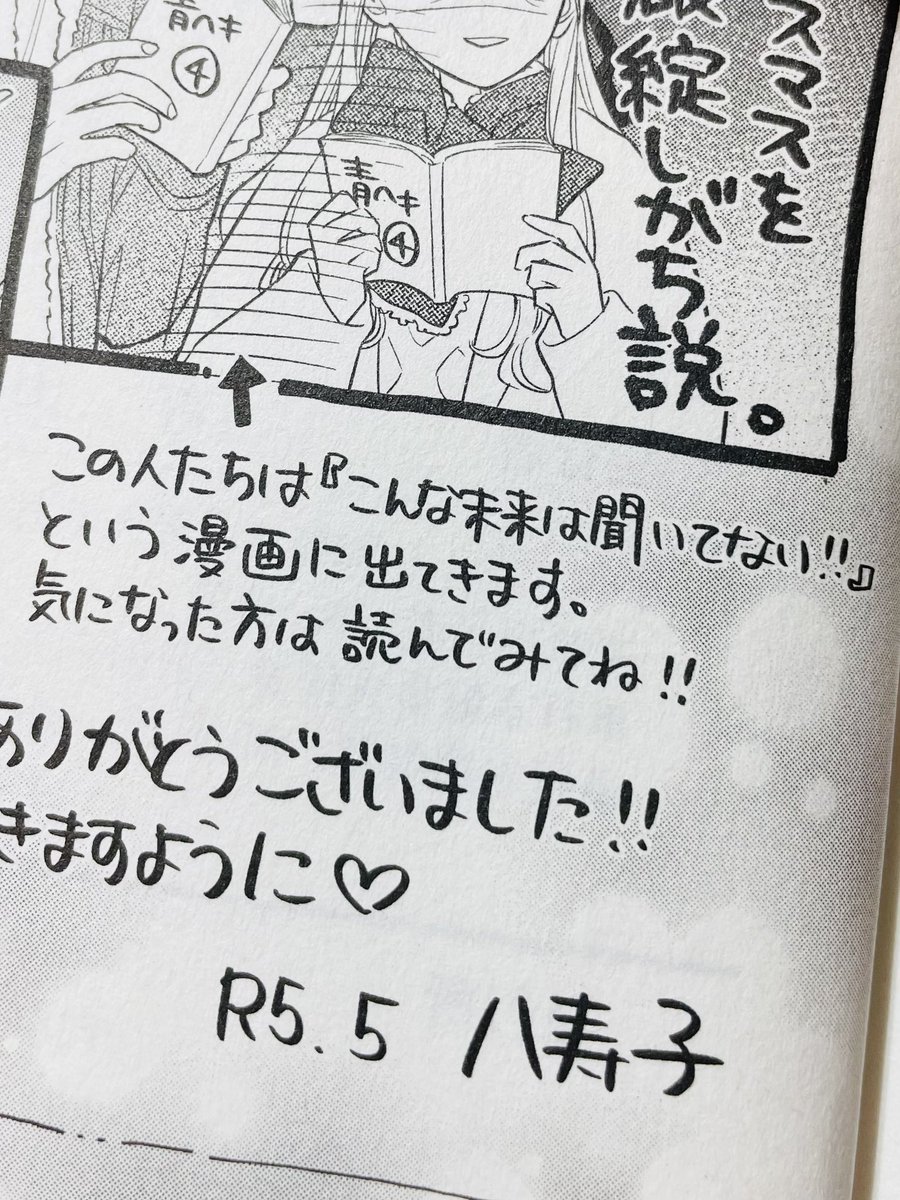 青ヘキ
④
青ヘキ
④
スマスを
綻しがち説。
この人たちは『こんな未来は聞いてない!!』
という漫画に出てきます。
気になった方は読んでみてね!!
ありがとうございました!!
きますように♡
R5.5 八寿子